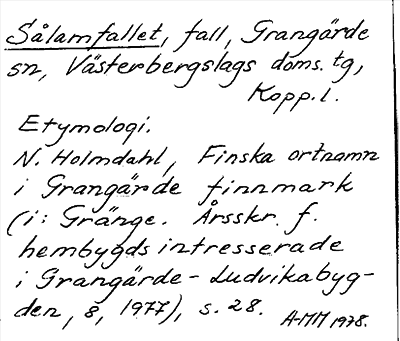 Sålamfallet, fall, Grangärde
sn, Västerbergslags doms. tg,
Kopp.l.
Etymologi.
N. Holmdahl, Finska ortnamn
i Grangärde finnmark
(i: Gränge. Årsskr. f.
hembygdsintresserade
i Grangärde - Ludvikabyg-
den, 8, 1977), s. 28.
A-MM 1978.